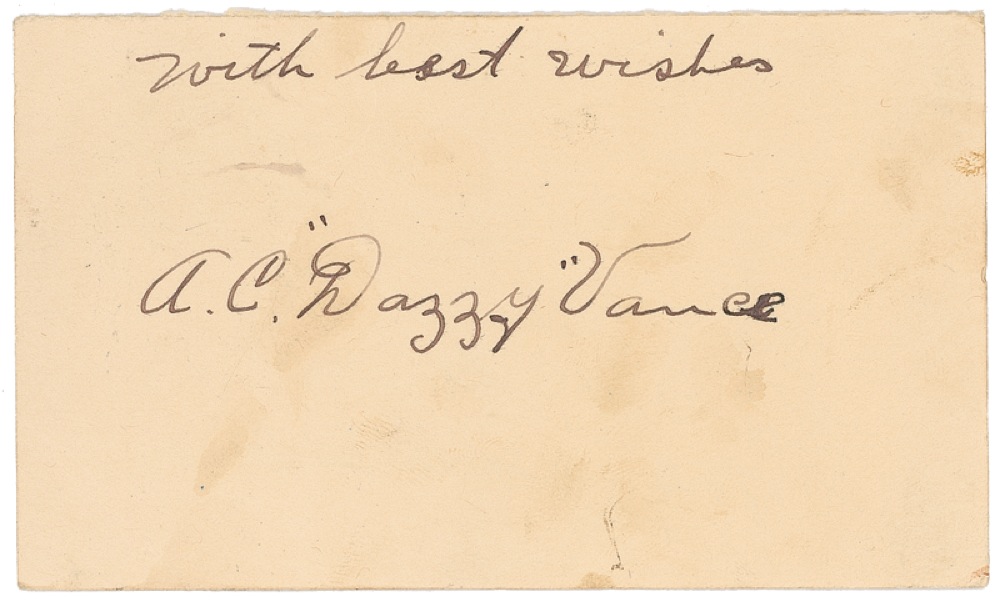 with best wishes
A.C. "Dazzy" Vance